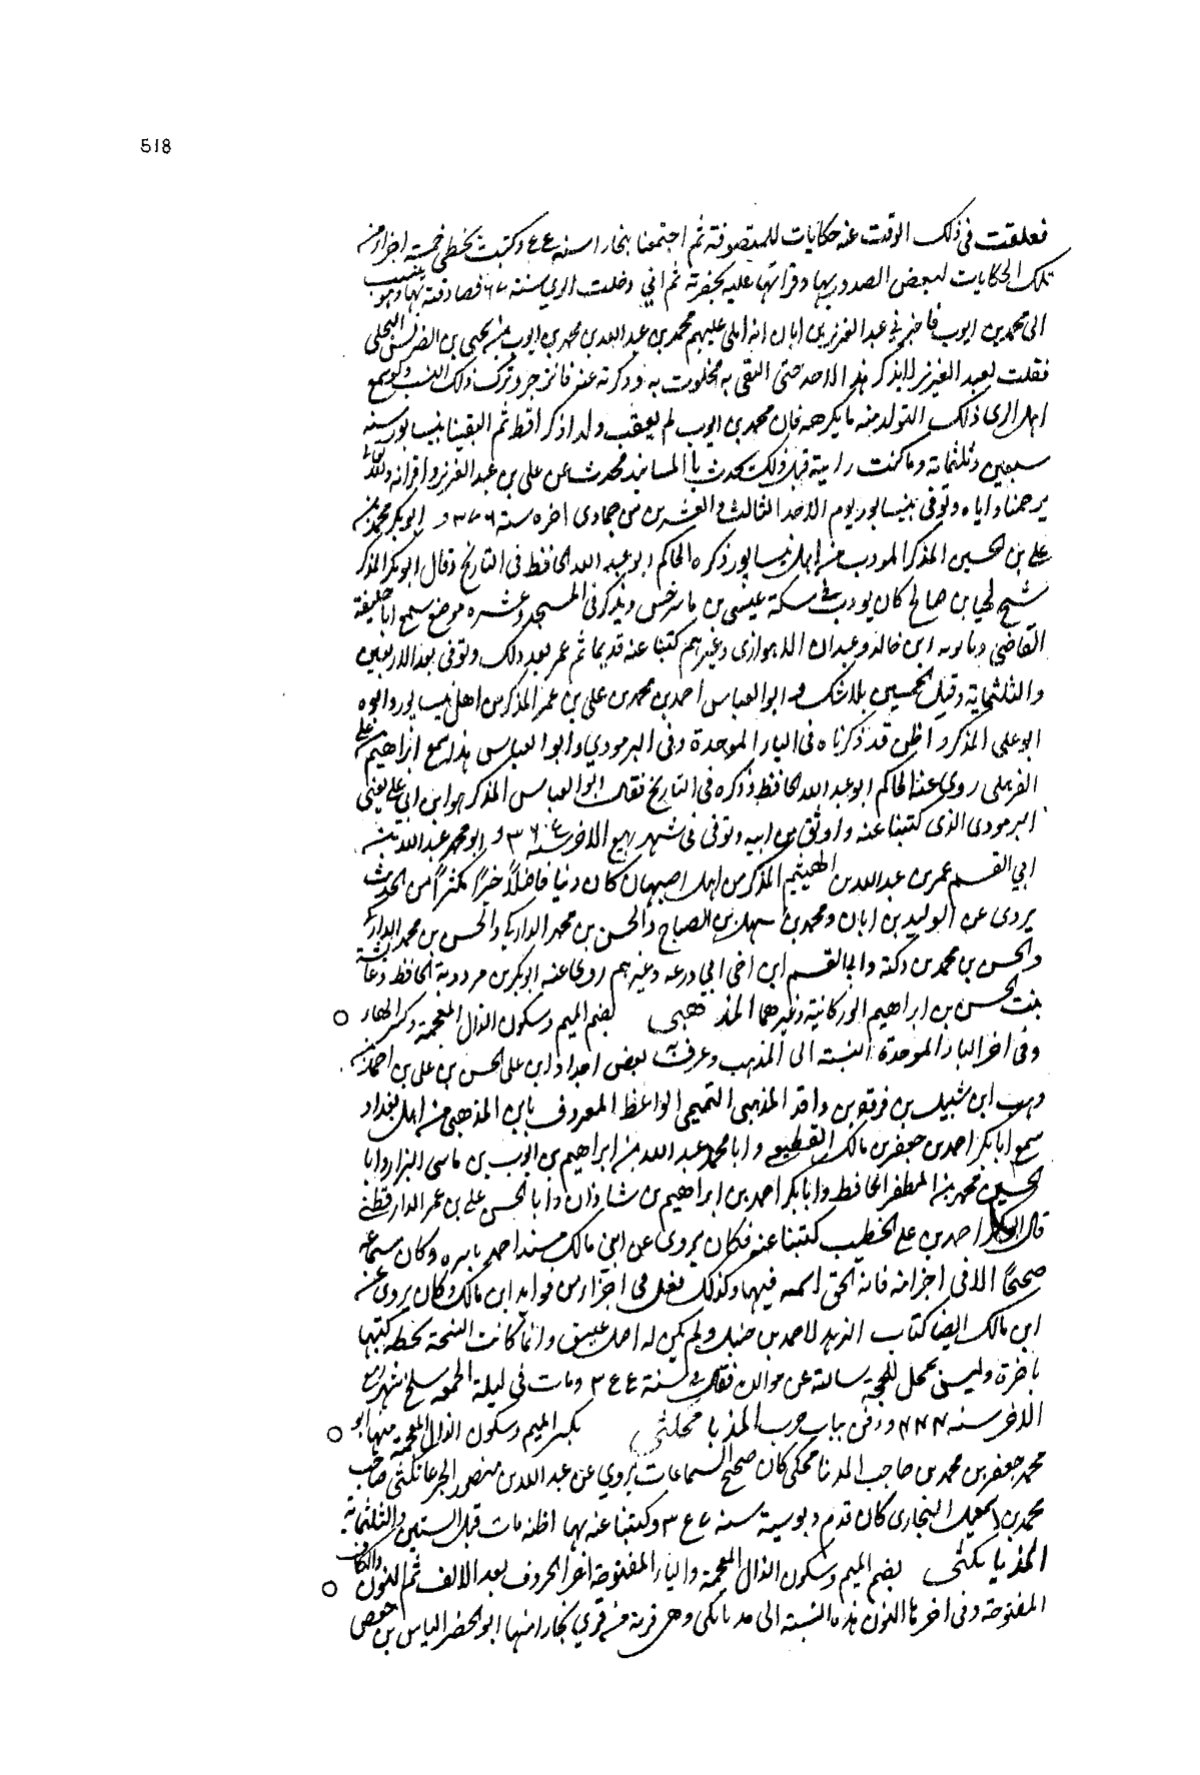 518
فعلقت في ذلك الوقت عنه حكايات للمتصوفة ثم اجتمعنا ببخارا سنه ٤٤ وكتبت بخطي خمسة اجزاء من
تلك الحكايات لبعض الصدور بها وقراتها عليه بحضرته ثم اني دخلت الري سنة ٦٧ فصادفته بها وهو ينتسب
الى محمد بن ايوب فاخبرني عبد العزيز بن ابان انه املى عليهم محمد بن عبد الله بن محمد بن ايوب بن يحيى بن الضريس البجلي
فقلت لعبد العزيز لا تذكر هذا لاحد حتى التقى به فخلوت به وزكرته عنه فانزجر وترك ذلك النسب ولو سمع
اهل الرى ذلك التولد منه ما يكرهه فان محمد بن ايوب لم يعقب ولدا ذكرا قط ثم التقينا بنيسابور سنه
سبعين وثلثماية وما كنت رايته قبل ذلك يحدث بالمسانيد فحدث عن على بن عبد العزيز واقرانه والله
يرحمنا واياه وتوفى بنيسابور يوم الاحد الثالث والعشرين من جمادى اخره سنة ٣٧٦ و ابو بكر محمد بن
على بن الحسين المذكر المودب من اهل نيسابور ذكره الحاكم ابو عبد الله الحافظ فى التاريخ وقال ابو بكر المذكر
شيخ كان يودب في سكة عيسى بن ماسرخس ويذكر فى المسجد وعشره موضع سمع ابا خليفة
القاضي وعبدان الاهوازى وغيرهم كتبنا عنه قديما ثم عمر بعد ذلك وتوفى بعد الاربعين
والثلثماية وقبل الخمسين بلا شك و ابو العباس احمد بن محمد بن على بن عمر المذكر من اهل نيسابور وابوه
ابو على المذكر واظن قد ذكرناه فى الباء الموحدة وفى البرمودي وابو العباس هذا سمع ابراهيم بن على
الذهلى روى عنه الحاكم ابو عبد الله الحافظ ذكره فى التاريخ فقال ابو العباس المذكر هو ابن ابي على يعنى
البرمودى الذى كتبنا عنه واوثق من ابيه وتوفى فى شهر ربيع الاخر سنة و ابو محمد عبد الله بن
ابي القسم عمر بن عبد الله بن الهيثم المذكر من اهل اصبهان كان دينا فاضلاً خيرًا مكثرًا من الحديث
يروى عن الوليد بن ابان ومحمد بن سهل بن الصباح والحسن بن محمد الداركي والحسن بن محمد الداركي
والحسن بن محمد بن دكة وابي القسم ابن اخى ابي زرعه وغيرهم روى عنه ابو بكر بن مردوية الحافظ وعائشة
بنت الحسن بن ابراهيم الوركانية وغيرهما المذهبى بضم الميم وسكون الذال المعجمة وكسر الهاء
وفى اخر الباء الموحدة النسبة الى المذهب وعرف به بعض اجداد ابن على الحسن بن على بن احمد بن
وهب ابن شبيل بن فروة بن واقد المذهبى التميمى الواعظ المعروف بابن المذهبى من اهل بغداد
سمع ابا بكر احمد بن جعفر بن مالك القطيعي وابا محمد عبد الله بن ابراهيم بن ايوب بن ماسى البزار وابا
الحسين محمد بن المظفر الحافظ وابا بكر احمد بن ابراهيم بن شاذان وابا الحسن على بن عمر الدارقطني
قال ابو بكر احمد بن على الخطيب كتبنا عنه فكان يروى عن ابن مالك مسند احمد باسره وكان سماعه
صحيحًا الا فى اجزاء منه فانه الحق اسمه فيها وكذلك فعل فى اجزاء من فوايد ابن مالك وكان يروى عن
ابن مالك ايضا كتاب الزهد لاحمد بن حنبل ولم يكن له اصل عتيق وانما كانت النسخة بخطه كتبها
باخرة وليس بمحل للحجة سالته عن مولده فقال فى سنة ٣٤٤ ومات في ليلة الجمعه سلخ شهر ربيع
الاخر سنه ٤٤٤ ودفن بباب حرب المذيا مجكثي بكسر الميم وسكون الذال المعجمة منها ابو
محمد جعفر بن محمد بن صاحب كان صحيح السماعات يروي عن عبد الله بن منصور صاحب
محمد بن اسمعيل البخارى كان قدم دبوسية سنه ٣٤٧ وكتبنا عنه بها اظنه مات قبل الستين والثلثماية
المذيا نكثى بضم الميم وسكون الذال المعجمة والياء المفتوحة اخر الحروف بعد الالف ثم النون والكاف
المفتوحة وفى اخرها النون هذه النسبة الى مديانكى وهى قرية من قرى بخارا منها ابو الخضر الياس بن حفص